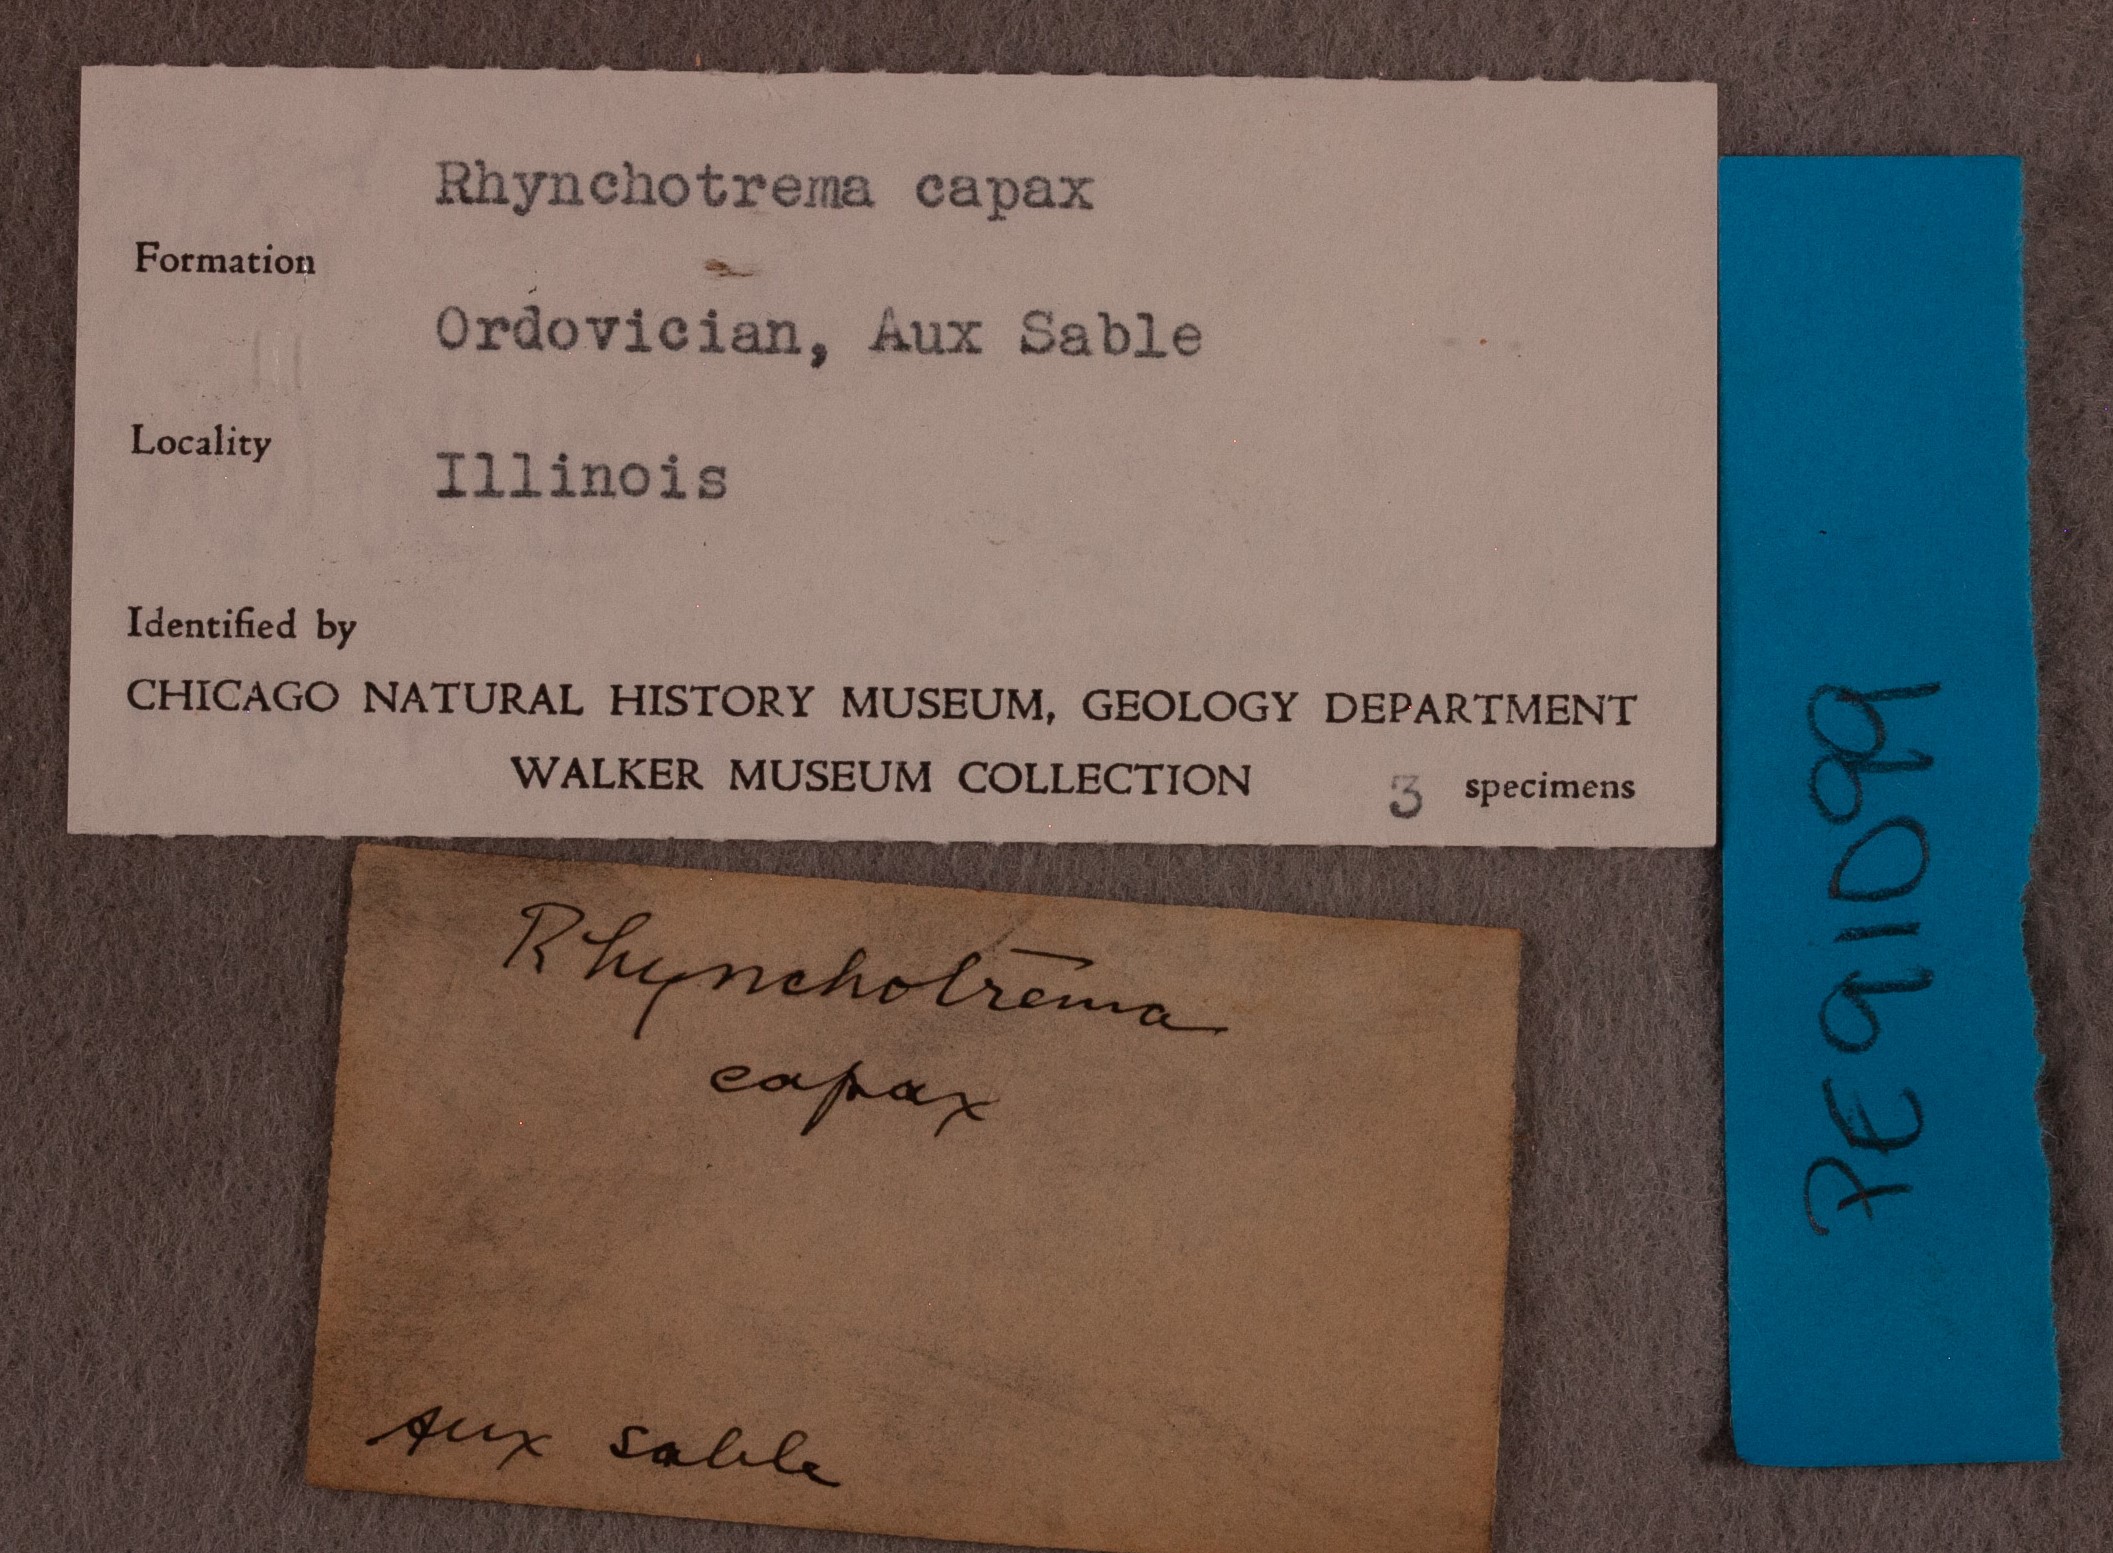 Rhynchotrema capax
Formation
Ordovician, Aux Sable
Locality
Illinois
Identified by
CHICAGO NATURAL HISTORY MUSEUM, GEOLOGY DEPARTMENT
WALKER MUSEUM COLLECTION 3 specimens
Rhynchotrema
capax
Aux sable
PE91099